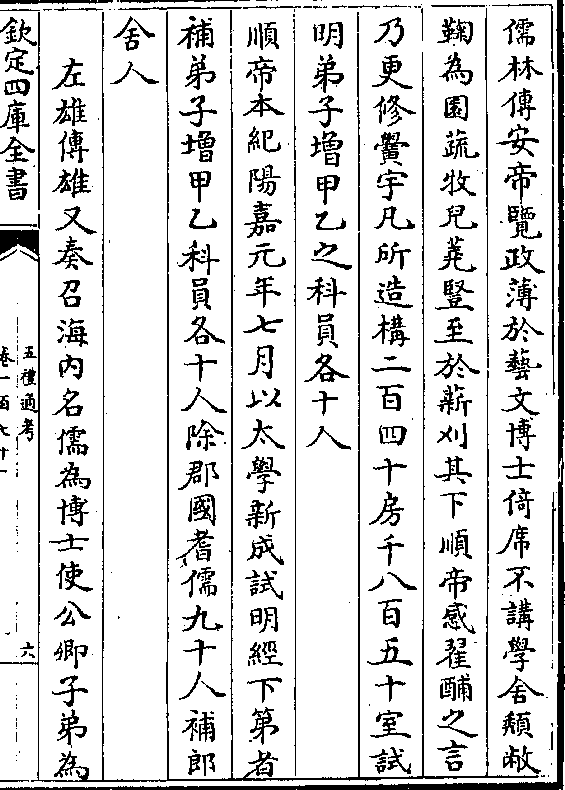 儒林傳安帝覽政薄於藝文博士倚席不講學舍頹敝
鞠為園蔬牧兒蕘豎至於薪刈其下順帝感翟酺之言
乃更修黌宇凡所造構二百四十房千八百五十室試
明弟子增甲乙之科員各十人
順帝本紀陽嘉元年七月以太學新成試明經下第者
補弟子增甲乙科員各十人除郡國耆儒九十人補郎
舍人
左雄傳雄又奏召海內名儒為博士使公卿子弟為
欽定四庫全書
五禮通考
卷一百七十一
六